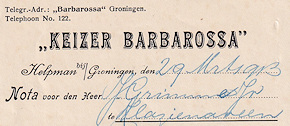 Telegr.-Adr.: „Barbarossa" Groningen.
Telephoon No. 122.
„KEIZER BARBAROSSA"
Helpman bij Groningen, den 29 Mrt
Nota voor den Heer
te